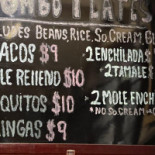 OMBO PLATES
UDES BEANS, RICE, SO. CREAM, G
ACOS $9
LE RELLENO $10
QUITOS $10
INGAS $9
2 ENCHILADA $
2 TAMALE $
2 MOLE ENCH
*NO SO. CREAM